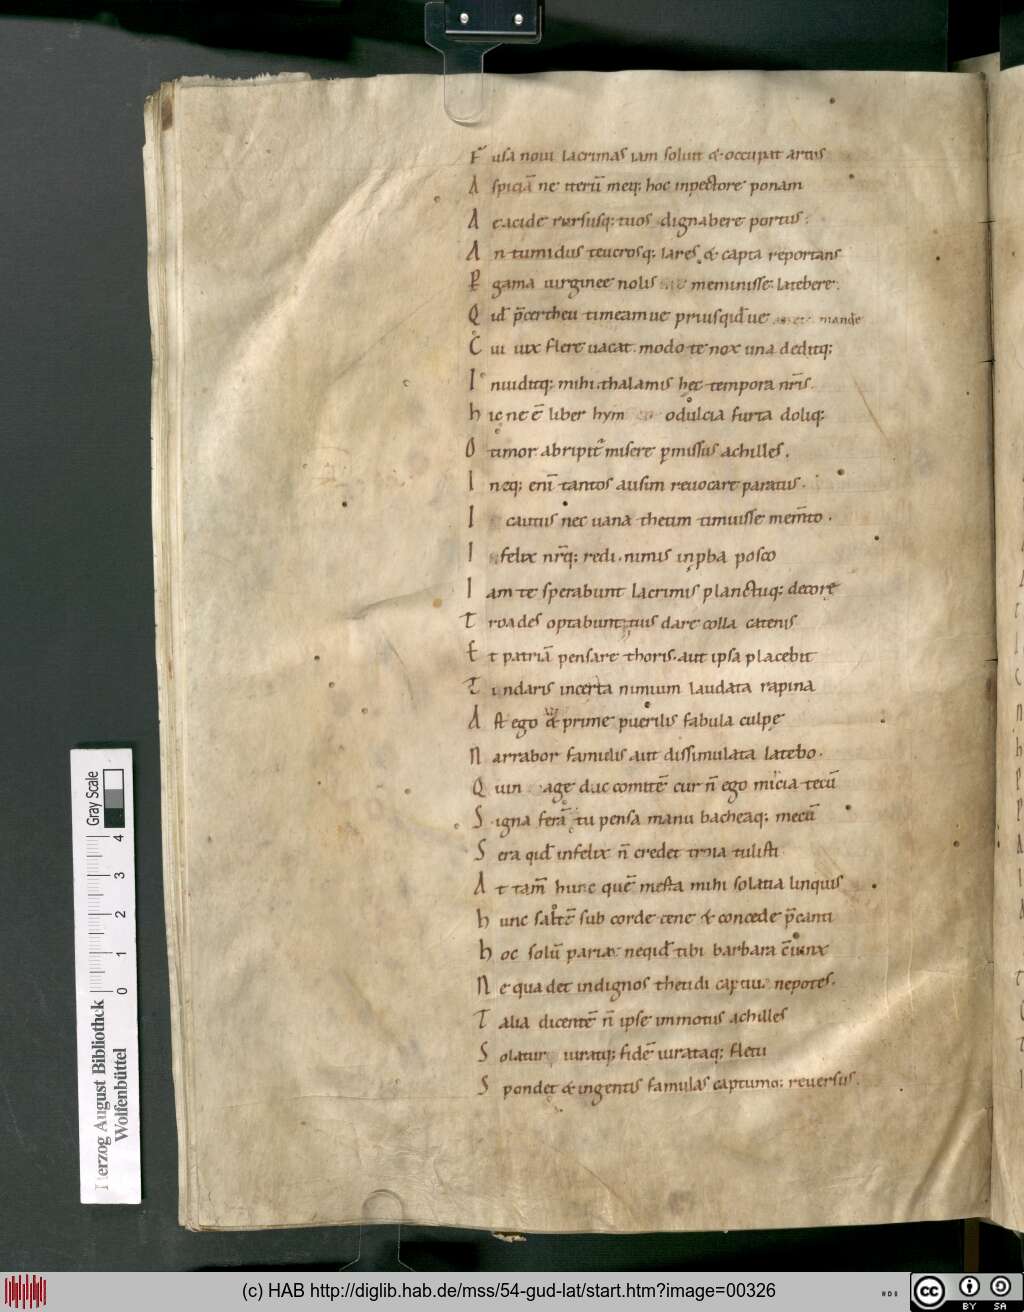 F usa noui lacrimas iam soluit & occupat artus
A spiciā ne iterū meq; hoc inpectore ponam
A eacide rursusq; tuos dignabere portus.
A n tumidus teucrosq; lares & capta reportans
gama uirginee nolis meminisse latebere.
Q id p̄cer heu timeamue priusqid ue mande
C ui uix flere uacat. modo te nox una deditq;
I nuiditq; mihi. thalamis hęc tempora nr̄is.
h ic ne ē liber hym odulcia furta doliq;
O timor abripit misere pmissus achilles.
I neq; enī tantos ausim reuocare paratus.
I cautus nec uana thetim timuisse mem̄to.
I felix nr̄q; redi. nimis inpba posco
I am te sperabunt lacrimis planctuq; decorę
T roades optabunt tuis dare colla catenis
E t patriā pensare thoris. aut ipsa placebit
T indaris incerta nimium laudata rapina
A st ego & prime puerilis fabula culpę
N arrabor famulis aut dissimulata latebo.
Q uin age duc comitē cur n̄ ego mcia tecū
S igna ferā tu pensa manu bacheaq; mecū
S era qid infelix n̄ credet troia tulisti
A t tam̄ hunc quē mesta mihi solatia linquis
h unc saltē sub corde tene & concede p̄canti
h oc solū pariat neqid tibi barbara c̄iunx
N e qua det indignos thetidi captiua nepotes.
T alia dicentē n̄ ipse immotus achilles
S olatur iuratq; fidē iurataq; fletu
S pondet & ingentis famulas captumq; reuersus.
Gray Scale
4
3
2
1
0
Herzog August Bibliothek
Wolfenbüttel
(c) HAB http://diglib.hab.de/mss/54-gud-lat/start.htm?image=00326
HAB
cc BY SA